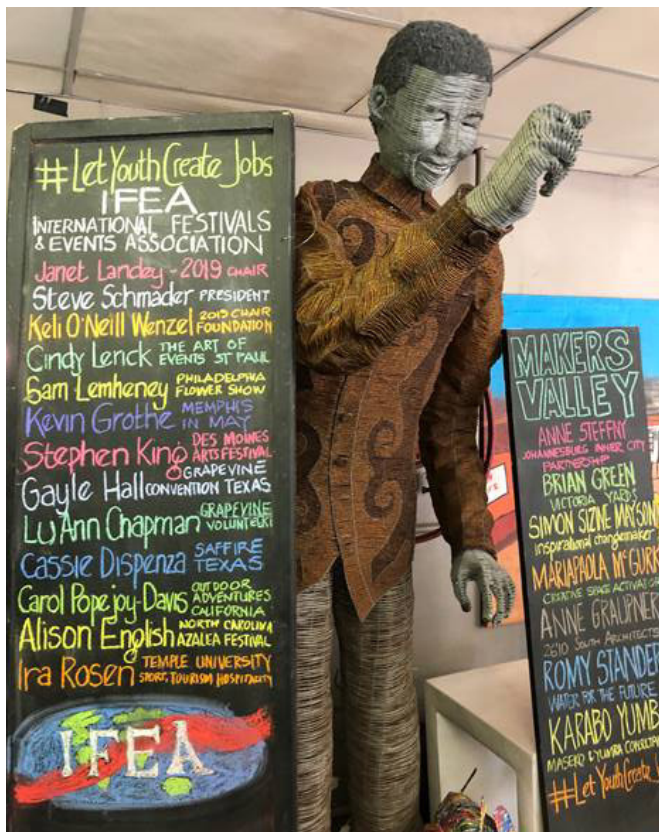 #Let Youth Create Jobs
IFEA
INTERNATIONAL FESTIVALS
& EVENTS ASSOCIATION
Janet Landey - 2019 CHAIR
Steve Schmader PRESIDENT
Keli O'Neill Wenzel 2019 CHAIR
FOUNDATION
Cindy Lerick THE ART OF
EVENTS ST PAUL
Sam Lemheney PHILADELPHIA
FLOWER SHOW
Kevin Grothe MEMPHIS
IN MAY
Stephen King DES MOINES
ARTS FESTIVAL
Gayle Hall GRAPEVINE
CONVENTION TEXAS
LuAnn Chapman GRAPEVINE
Cassie Dispenza SAFFIRE
TEXAS
Carol Popejoy-Davis OUTDOOR
ADVENTURES
CALIFORNIA
Alison English NORTH CAROLINA
AZALEA FESTIVAL
Ira Rosen TEMPLE UNIVERSITY
SPORT, TOURISM HOSPITALITY
IFEA
MAKERS
VALLEY
ANNE STEFFNY
JOHANNESBURG INNER CITY
PARTNERSHIP
BRIAN GREEN
VICTORIA YARDS
SIMON SIZWE MAYSON
inspirational changemaker
MARIAPAOLA McGURK
CREATIVE SPACE ACTIVATOR
ANNE GRAUPNER
2610 SOUTH ARCHITECTS
ROMY STANDER
WATER FOR THE FUTURE
KARABO YUMB
MASEKO &
#Let Youth Create J